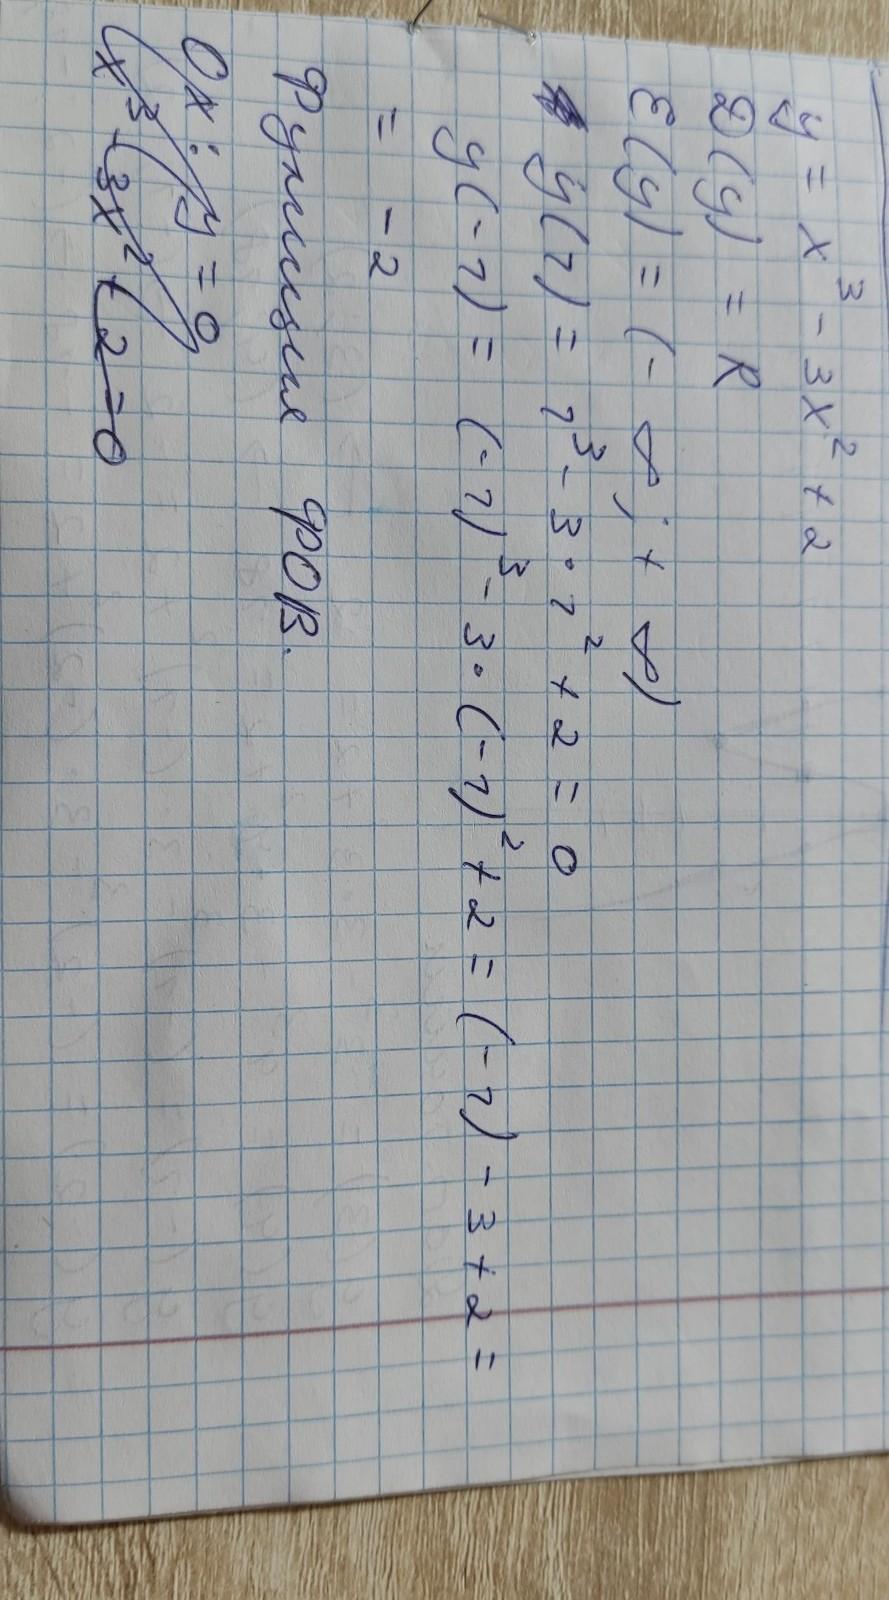 y = x³ - 3x² + 2
D(y) = R
E(y) = (-∞; +∞)
y(1) = 1³ - 3·1² + 2 = 0
y(-1) = (-1)³ - 3·(-1)² + 2 = (-1) - 3 + 2 =
= -2
Функция ФОВ.
Ox: y = 0
x³ - 3x² + 2 = 0